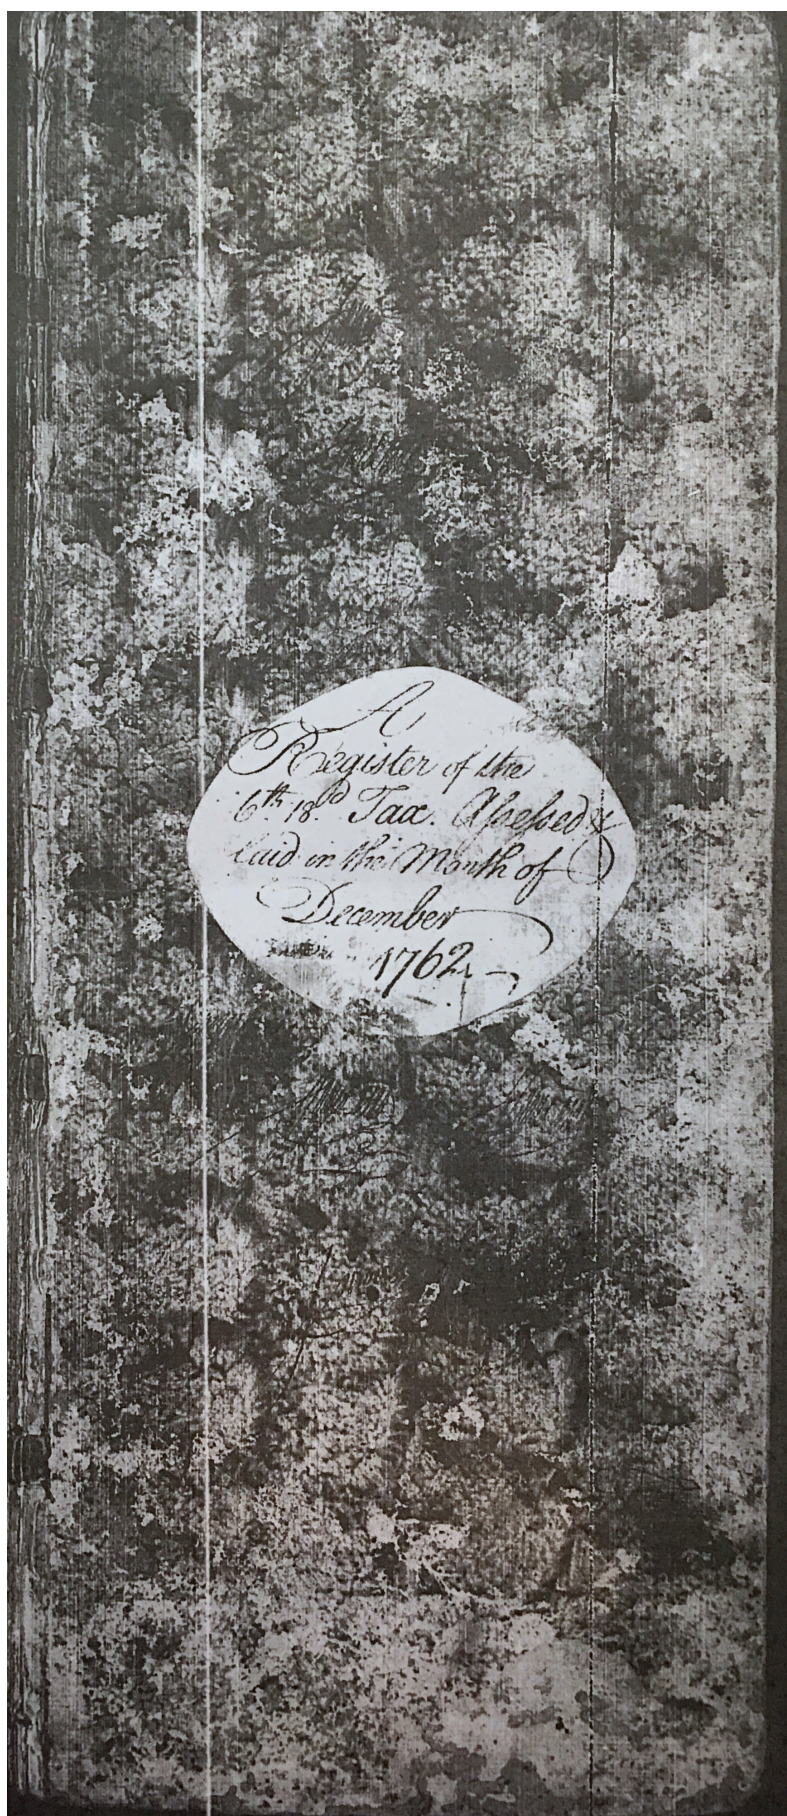 A
Register of the
6th. 18d Tax. Aſseſsed &
laid in the Month of
December
1762